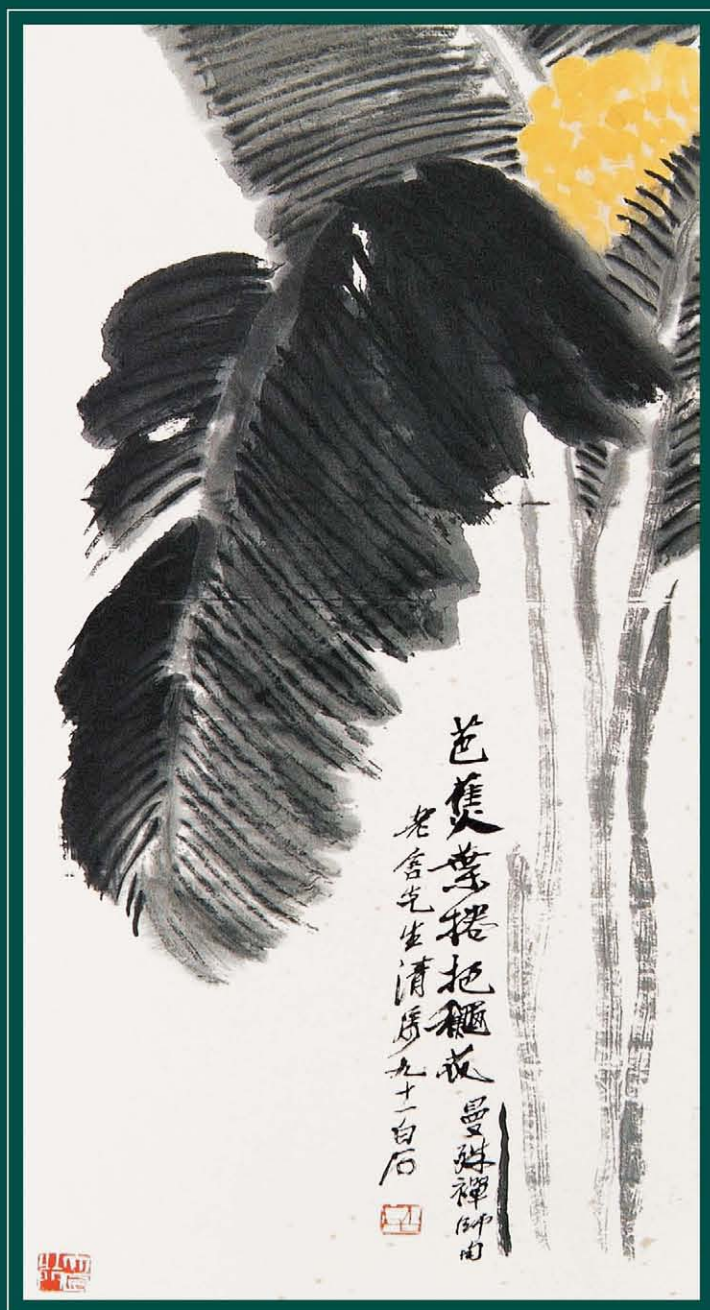 芭蕉葉捲抱龝花 曼殊禪師句
老舍先生清屬九十一白石